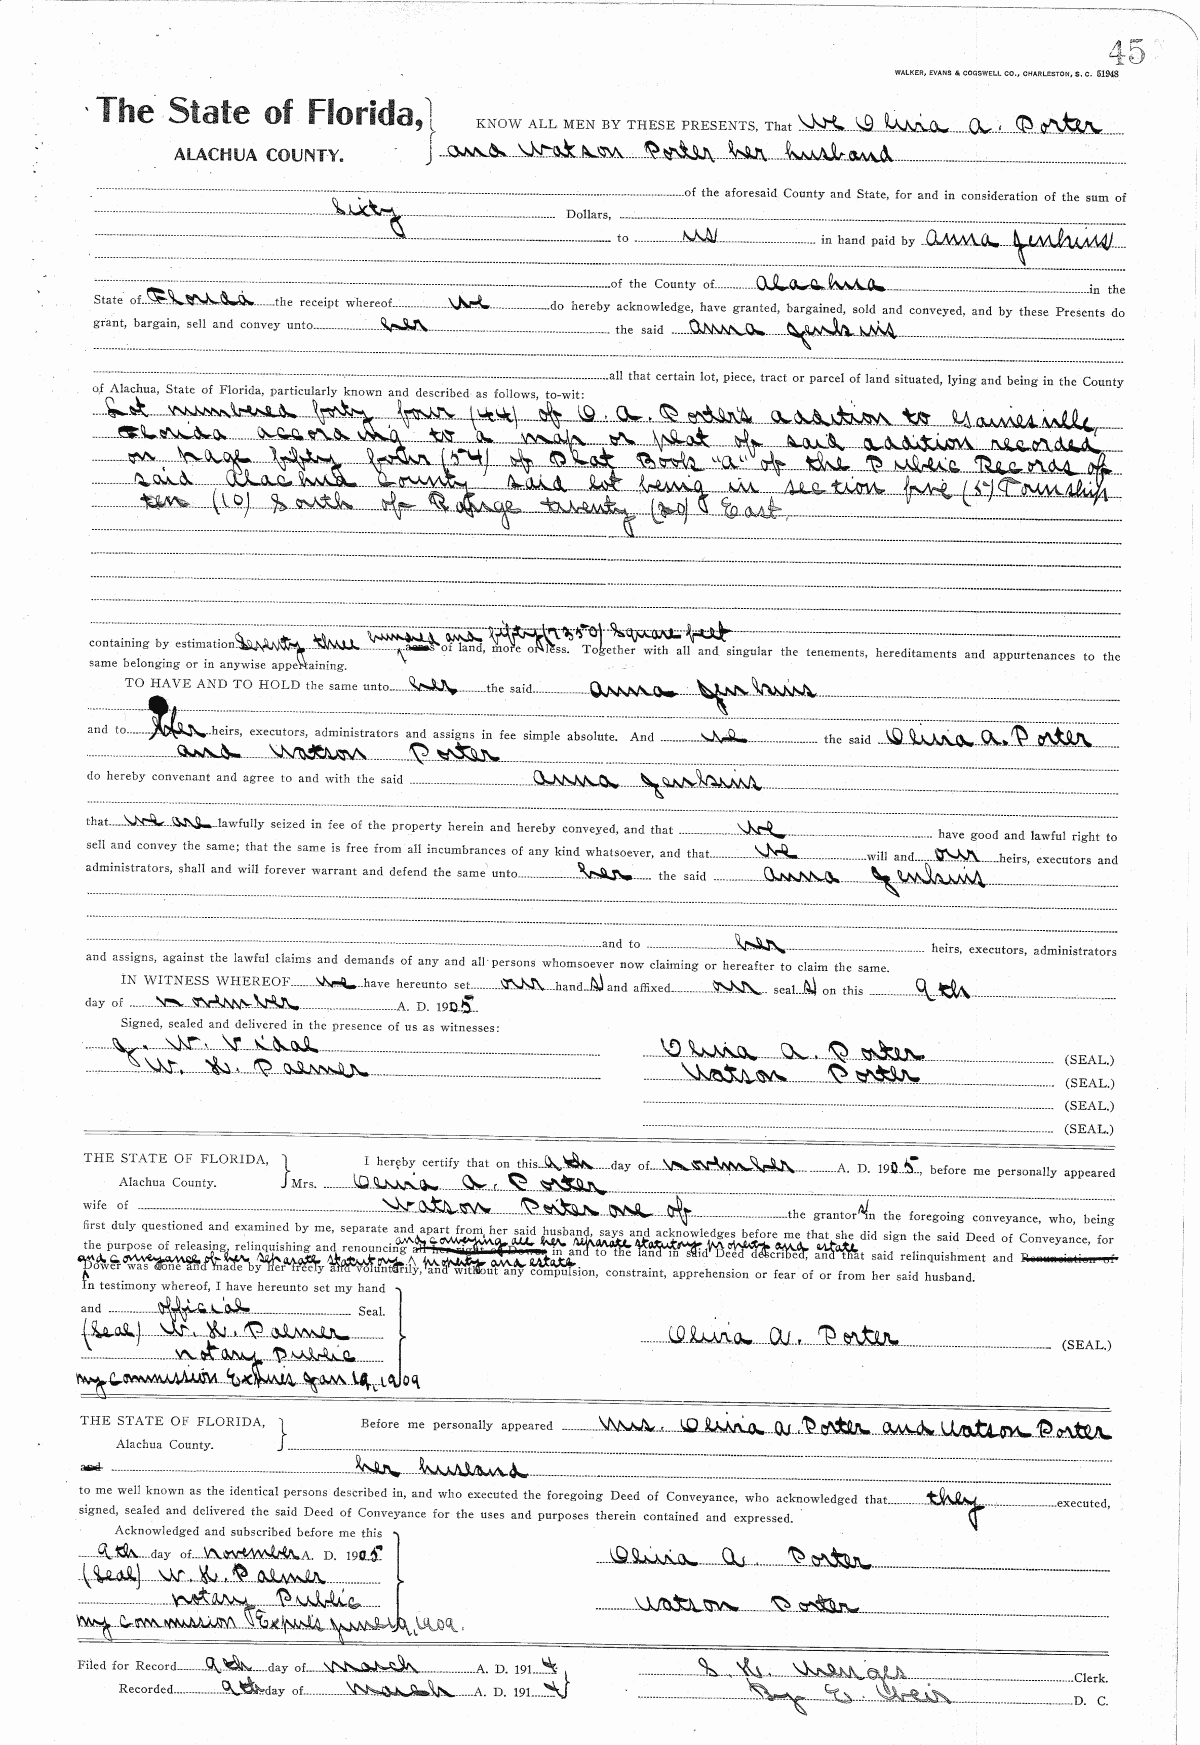 45
WALKER, EVANS & COGSWELL CO., CHARLESTON, S. C. 51948
The State of Florida, KNOW ALL MEN BY THESE PRESENTS, That We Olivia A. Porter
ALACHUA COUNTY. and Watson Porter her husband
of the aforesaid County and State, for and in consideration of the sum of
Sixty Dollars,
to us in hand paid by Anna Jenkins
of the County of Alachua in the
State of Florida the receipt whereof we do hereby acknowledge, have granted, bargained, sold and conveyed, and by these Presents do
grant, bargain, sell and convey unto her the said Anna Jenkins
all that certain lot, piece, tract or parcel of land situated, lying and being in the County
of Alachua, State of Florida, particularly known and described as follows, to-wit:
Lot numbered forty four (44) of O. A. Porter's addition to Gainesville,
Florida according to a map or plat of said addition recorded
on page fifty four (54) of Plat Book "A" of the Public Records of
said Alachua County said lot being in section five (5) Township
ten (10) South of Range twenty (20) East.
containing by estimation Seventy three hundred and fifty (7350) Square feet
acres of land, more or less. Together with all and singular the tenements, hereditaments and appurtenances to the
same belonging or in anywise appertaining.
TO HAVE AND TO HOLD the same unto her the said Anna Jenkins
and to her heirs, executors, administrators and assigns in fee simple absolute. And we the said Olivia A. Porter
and Watson Porter
do hereby convenant and agree to and with the said Anna Jenkins
that we are lawfully seized in fee of the property herein and hereby conveyed, and that we have good and lawful right to
sell and convey the same; that the same is free from all incumbrances of any kind whatsoever, and that we will and our heirs, executors and
administrators, shall and will forever warrant and defend the same unto her the said Anna Jenkins
and to her heirs, executors, administrators
and assigns, against the lawful claims and demands of any and all persons whomsoever now claiming or hereafter to claim the same.
IN WITNESS WHEREOF we have hereunto set our hand s and affixed our seal s on this 9th
day of November A. D. 1905.
Signed, sealed and delivered in the presence of us as witnesses:
J. W. Vidal Olivia A. Porter (SEAL.)
W. K. Palmer Watson Porter (SEAL.)
(SEAL.)
(SEAL.)
THE STATE OF FLORIDA, I hereby certify that on this 9th day of November A. D. 1905, before me personally appeared
Alachua County. Mrs. Olivia A. Porter
wife of Watson Porter one of the grantor s in the foregoing conveyance, who, being
first duly questioned and examined by me, separate and apart from her said husband, says and acknowledges before me that she did sign the said Deed of Conveyance, for
and conveying all her separate statutory property and estate
the purpose of releasing, relinquishing and renouncing all her right of Dower in and to the land in said Deed described, and that said relinquishment and Renunciation of
and conveyance of her separate statutory property and estate
Dower was done and made by her freely and voluntarily, and without any compulsion, constraint, apprehension or fear of or from her said husband.
In testimony whereof, I have hereunto set my hand
and official Seal.
(Seal) W. K. Palmer Olivia A. Porter (SEAL.)
Notary Public
my commission Expires Jan 19, 1909
THE STATE OF FLORIDA, Before me personally appeared Mrs. Olivia A. Porter and Watson Porter
Alachua County.
and her husband
to me well known as the identical persons described in, and who executed the foregoing Deed of Conveyance, who acknowledged that they executed,
signed, sealed and delivered the said Deed of Conveyance for the uses and purposes therein contained and expressed.
Acknowledged and subscribed before me this
9th day of November A. D. 1905 Olivia A. Porter
(Seal) W. K. Palmer
Notary Public Watson Porter
my commission Expires June 19, 1909.
Filed for Record 9th day of March A. D. 1914 S. H. Wienges Clerk.
Recorded 9th day of March A. D. 1914 By E. Weir D. C.